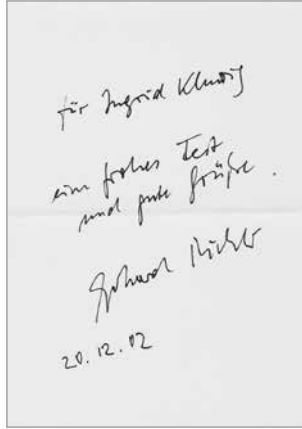 für Ingrid Klussig
ein frohes Fest
und gute Grüße.
Gerhard Richter
20.12.02